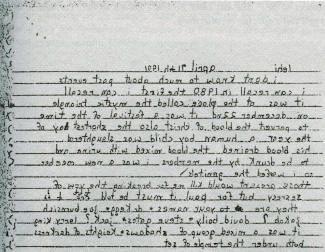 april 1991
i dont know to much about past events
i can recall in 1980 the first i can recall
it was at the place called the mystic triangle
on december 22nd it was a festival of the time
to prevent the blood of christ also the shortest day of
the year a human boy child was slaughtered
his blood drained, the blood mixed with wine and
to be drunk by the members i was a new member
so i worked the
those present would kill me for breaking the vow of
secrecy but for you it must be
they are to your names
david billy steve jack larry king
it was a mixed group of shadows + knights of darkness
both under the triangle of set